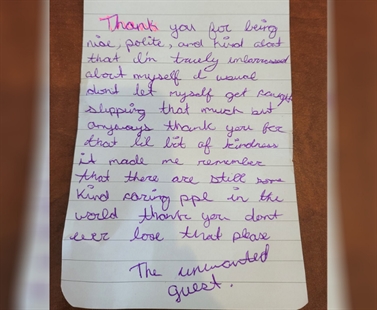 Thank you for being
nise, polite, and kind about
that i'm truly embarrassed
about myself I usual
dont let myself get caught
slipping that much but
anyways thank you for
that lil bit of kindness
it made me remember
that there are still some
kind caring ppl in the
world thank you dont
ever lose that please
The unwanted
guest.